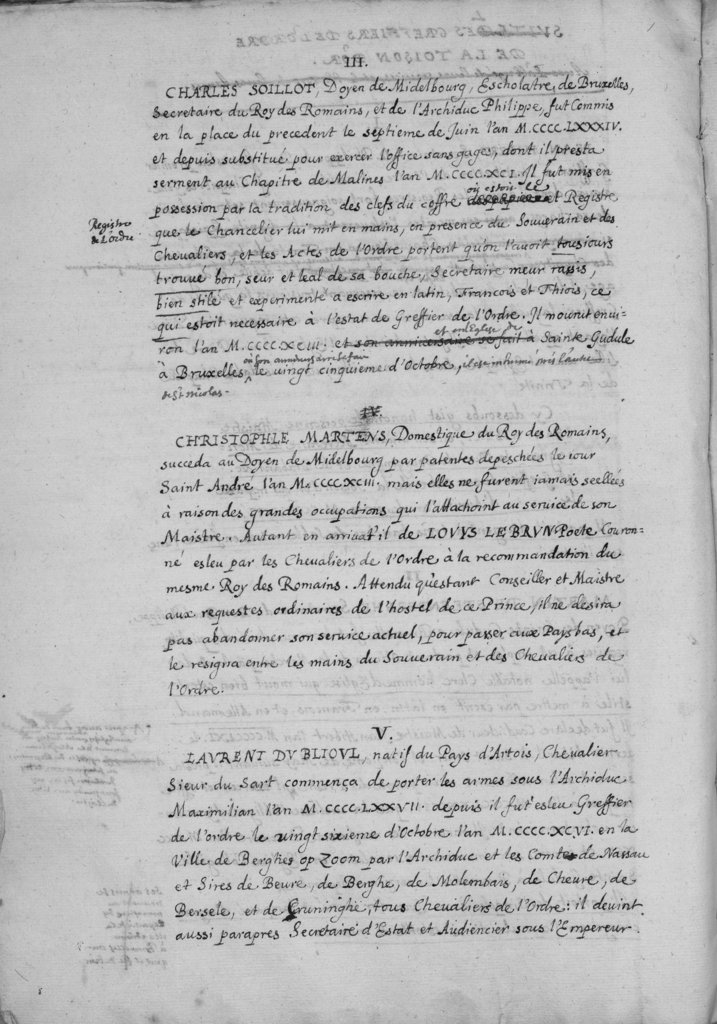 III.
CHARLES SOILLOT, Doyen de Midelbourg, Escholatre de Bruxelles,
Secretaire du Roy des Romains, et de l'Archiduc Philippe, fut Commis
en la place du precedent le septieme de Juin l'an M.CCCC.LXXXIV.
et depuis substitué pour exercer l'office sans gages, dont il presta
serment au Chapitre de Malines l'an M.CCCC.XCI. Il fut mis en
où estoit le
possession par la tradition des clefs du coffre et Registre
Registre
de L'ordre
que le Chancelier lui mit en mains, en presence du Souverain et des
Chevaliers, et les Actes de l'Ordre portent qu'on l'avoit tousiours
trouvé bon, seur et leal de sa bouche, Secretaire meur rassis,
bien stile et experimenté a escrire en latin, Francois et Thiois, ce
qui estoit necessaire à l'estat de Greffier de l'Ordre. Il mourut envi-
et en l'Eglise de
ron l'an M.CCCC.XCIII. et son anniversaire se fait à Sainte Gudule
où son anniversaire se fait
à Bruxelles, le vingt cinquieme d'Octobre, il est inhumé prés l'autel
de St. Nicolas.
IV.
CHRISTOPHLE MARTENS, Domestique du Roy des Romains,
succeda au Doyen de Midelbourg par patentes depeschées le iour
Saint André l'an M.CCCC.XCIII. mais elles ne furent iamais seellées
à raison des grandes occupations qui l'attachoint au service de son
Maistre. Autant en arriva t'il de LOUYS LE BRUN Poete Couron-
né esleu par les Chevaliers de l'Ordre à la recommandation du
mesme Roy des Romains. Attendu qu'estant Conseiller et Maistre
aux requestes ordinaires de l'hostel de ce Prince, il ne desira
pas abandonner son service actuel, pour passer aux Pays bas, et
le resigna entre les mains du Souverain et des Chevaliers de
l'Ordre.
V.
LAURENT DU BLIOUL, natif du Pays d'Artois, Chevalier
Sieur du Sart commença de porter les armes sous l'Archiduc
Maximilian l'an M.CCCC.LXXVII. depuis il fut esleu Greffier
de l'ordre le vingt sixieme d'Octobre l'an M.CCCC.XCVI. en la
Ville de Berghes op Zoom par l'Archiduc et les Comtes de Nassau
et Sires de Beure, de Berghe, de Molembais, de Cheure, de
Bersele, et de Cruninghe, tous Chevaliers de l'Ordre: il devint
aussi parapres Secretaire d'Estat et Audiencier sous l'Empereur